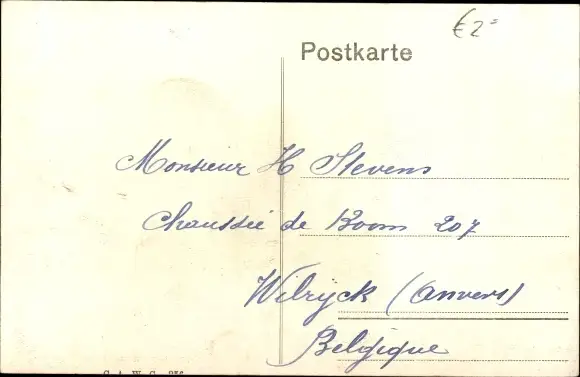 € 2=
Postkarte
Monsieur H Stevens
Chaussée de Boom 207
Wilryck (Anvers)
Belgique